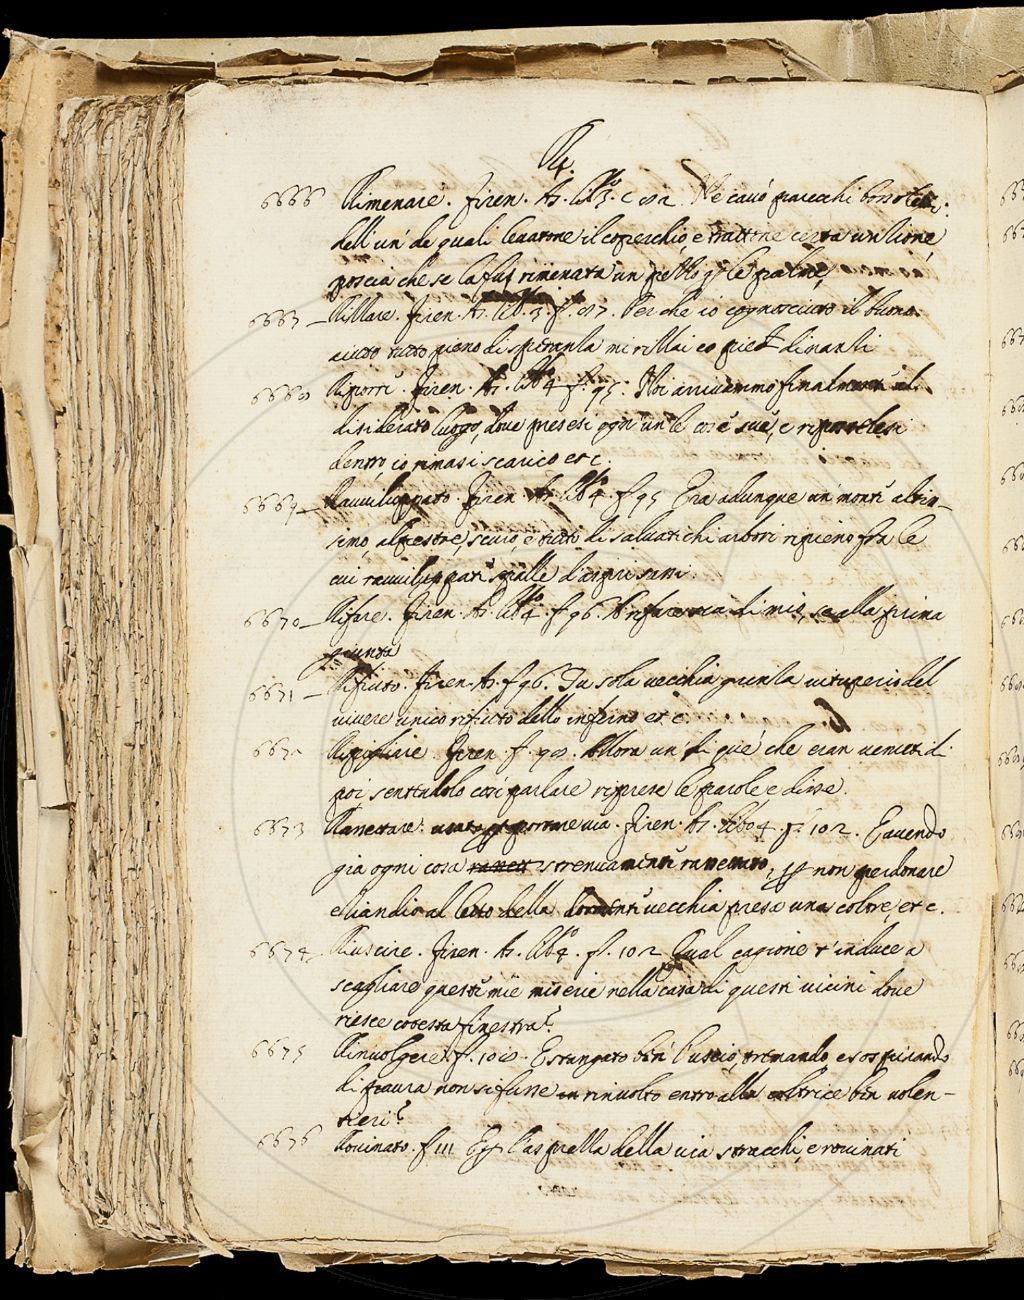 R 4.
6666 Rimenare. Firen. As. lib.º 3. c. 82 Ne cavò parecchi bossoletti,
dell'un de quali levatone il coperchio e trattone certa untione
poscia che se la fu rimenata un pezzo p le palme,
6667 – Rizzare. Firen. As. lib.º 3. f. 87. Perche io cognosciuto il buono
aiuto tutto pieno di speranza mi rizzai co piedi dinanzi
6668 Riporre. Firen. As. lib.º 4 f. 95. Noi arrivammo finalmente al
disiderato luogo, dove presesi ogn'un le cose sue, e ripostelesi
dentro, io rimasi scarico et c.
6669 – Ravviluppato. Firen. As. lib.º 4. f. 95 Era adunque un monte altis-
simo, alpestre, scuro, e tutto di salvatichi arbori ripieno fra le
cui ravviluppate spalle d'aspri sassi
6670 – Rifare. Firen. As. lib.º 4. f. 96. di mio, se alla prima
giunta
6671 – Rifiuto. Firen. As. f. 96. Tu sola vecchia grinza vituperio del
vivere unico rifiuto dello inferno et c.
6672 Ripigliare Firen. f. 98. Allora un di que' che eran venuti di
poi, sentendolo così parlare riprese le parole e disse.
6673 Ranettare: Firen. As. libo 4. f. 102. Havendo
gia ogni cosa strenuamente ranettato, p non perdonare
etiandio al letto della dormente vecchia presa una coltre, et c.
6674 – Riuscire. Firen. As. lib.º 4. fl. 102 Qual cagione t'induce a
scagliare queste mie miserie nella casa di questi vicini dove
riesce cotesta finestra?
6675 Rinvolgere. fl. 108. Estungato ben l'uscio, tremando e sospirando
di paura non si fusse rinvolto entro alla coltrice ben volen-
tieri?
6676 Rovinato. f 111 E p l'asprezza della via stracchi, e rovinati